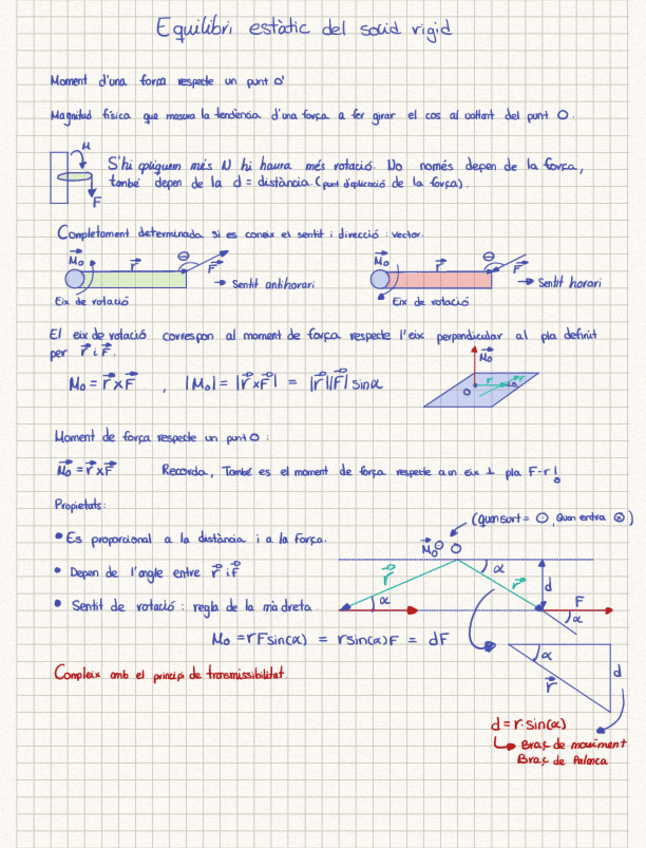 Equilibri estàtic del solid rigid
Moment d'una força respecte un punt o'
Magnitud física que mesura la tendència d'una força a fer girar el cos al voltant del punt O.
M
S'hi apliquem més N hi haura més rotació. No només depen de la força,
també depen de la d = distància. (punt d'aplicació de la força).
F
Completament determinada si es coneix el sentit i direcció : vector.
M₀ r θ F → Sentit antihorari
Eix de rotació
M₀ r θ F → Sentit horari
Eix de rotació
El eix de rotació correspon al moment de força respecte l'eix perpendicular al pla definit
per r⃗ i F⃗.
M₀ = r⃗ x F⃗ , |M₀| = |r⃗ x F⃗| = |r⃗||F⃗| sinα
M⃗₀
O r F
Moment de força respecte un punt O :
M⃗₀ = r⃗ x F⃗ Recorda, També es el moment de força respecte a un eix ⊥ pla F-r!
Propietats:
(quan surt = ⊙, Quan entra ⊗)
• Es proporcional a la distància i a la força.
M⃗₀ ⊙ O
• Depen de l'angle entre r⃗ i F⃗
r⃗ α r⃗ d
• Sentit de rotació : regla de la mà dreta.
α F α
M₀ = rFsin(α) = rsin(α)F = dF
α d r⃗
Compleix amb el principi de transmissibilitat.
d = r·sin(α)
↳ Braç de moviment
Braç de Palanca